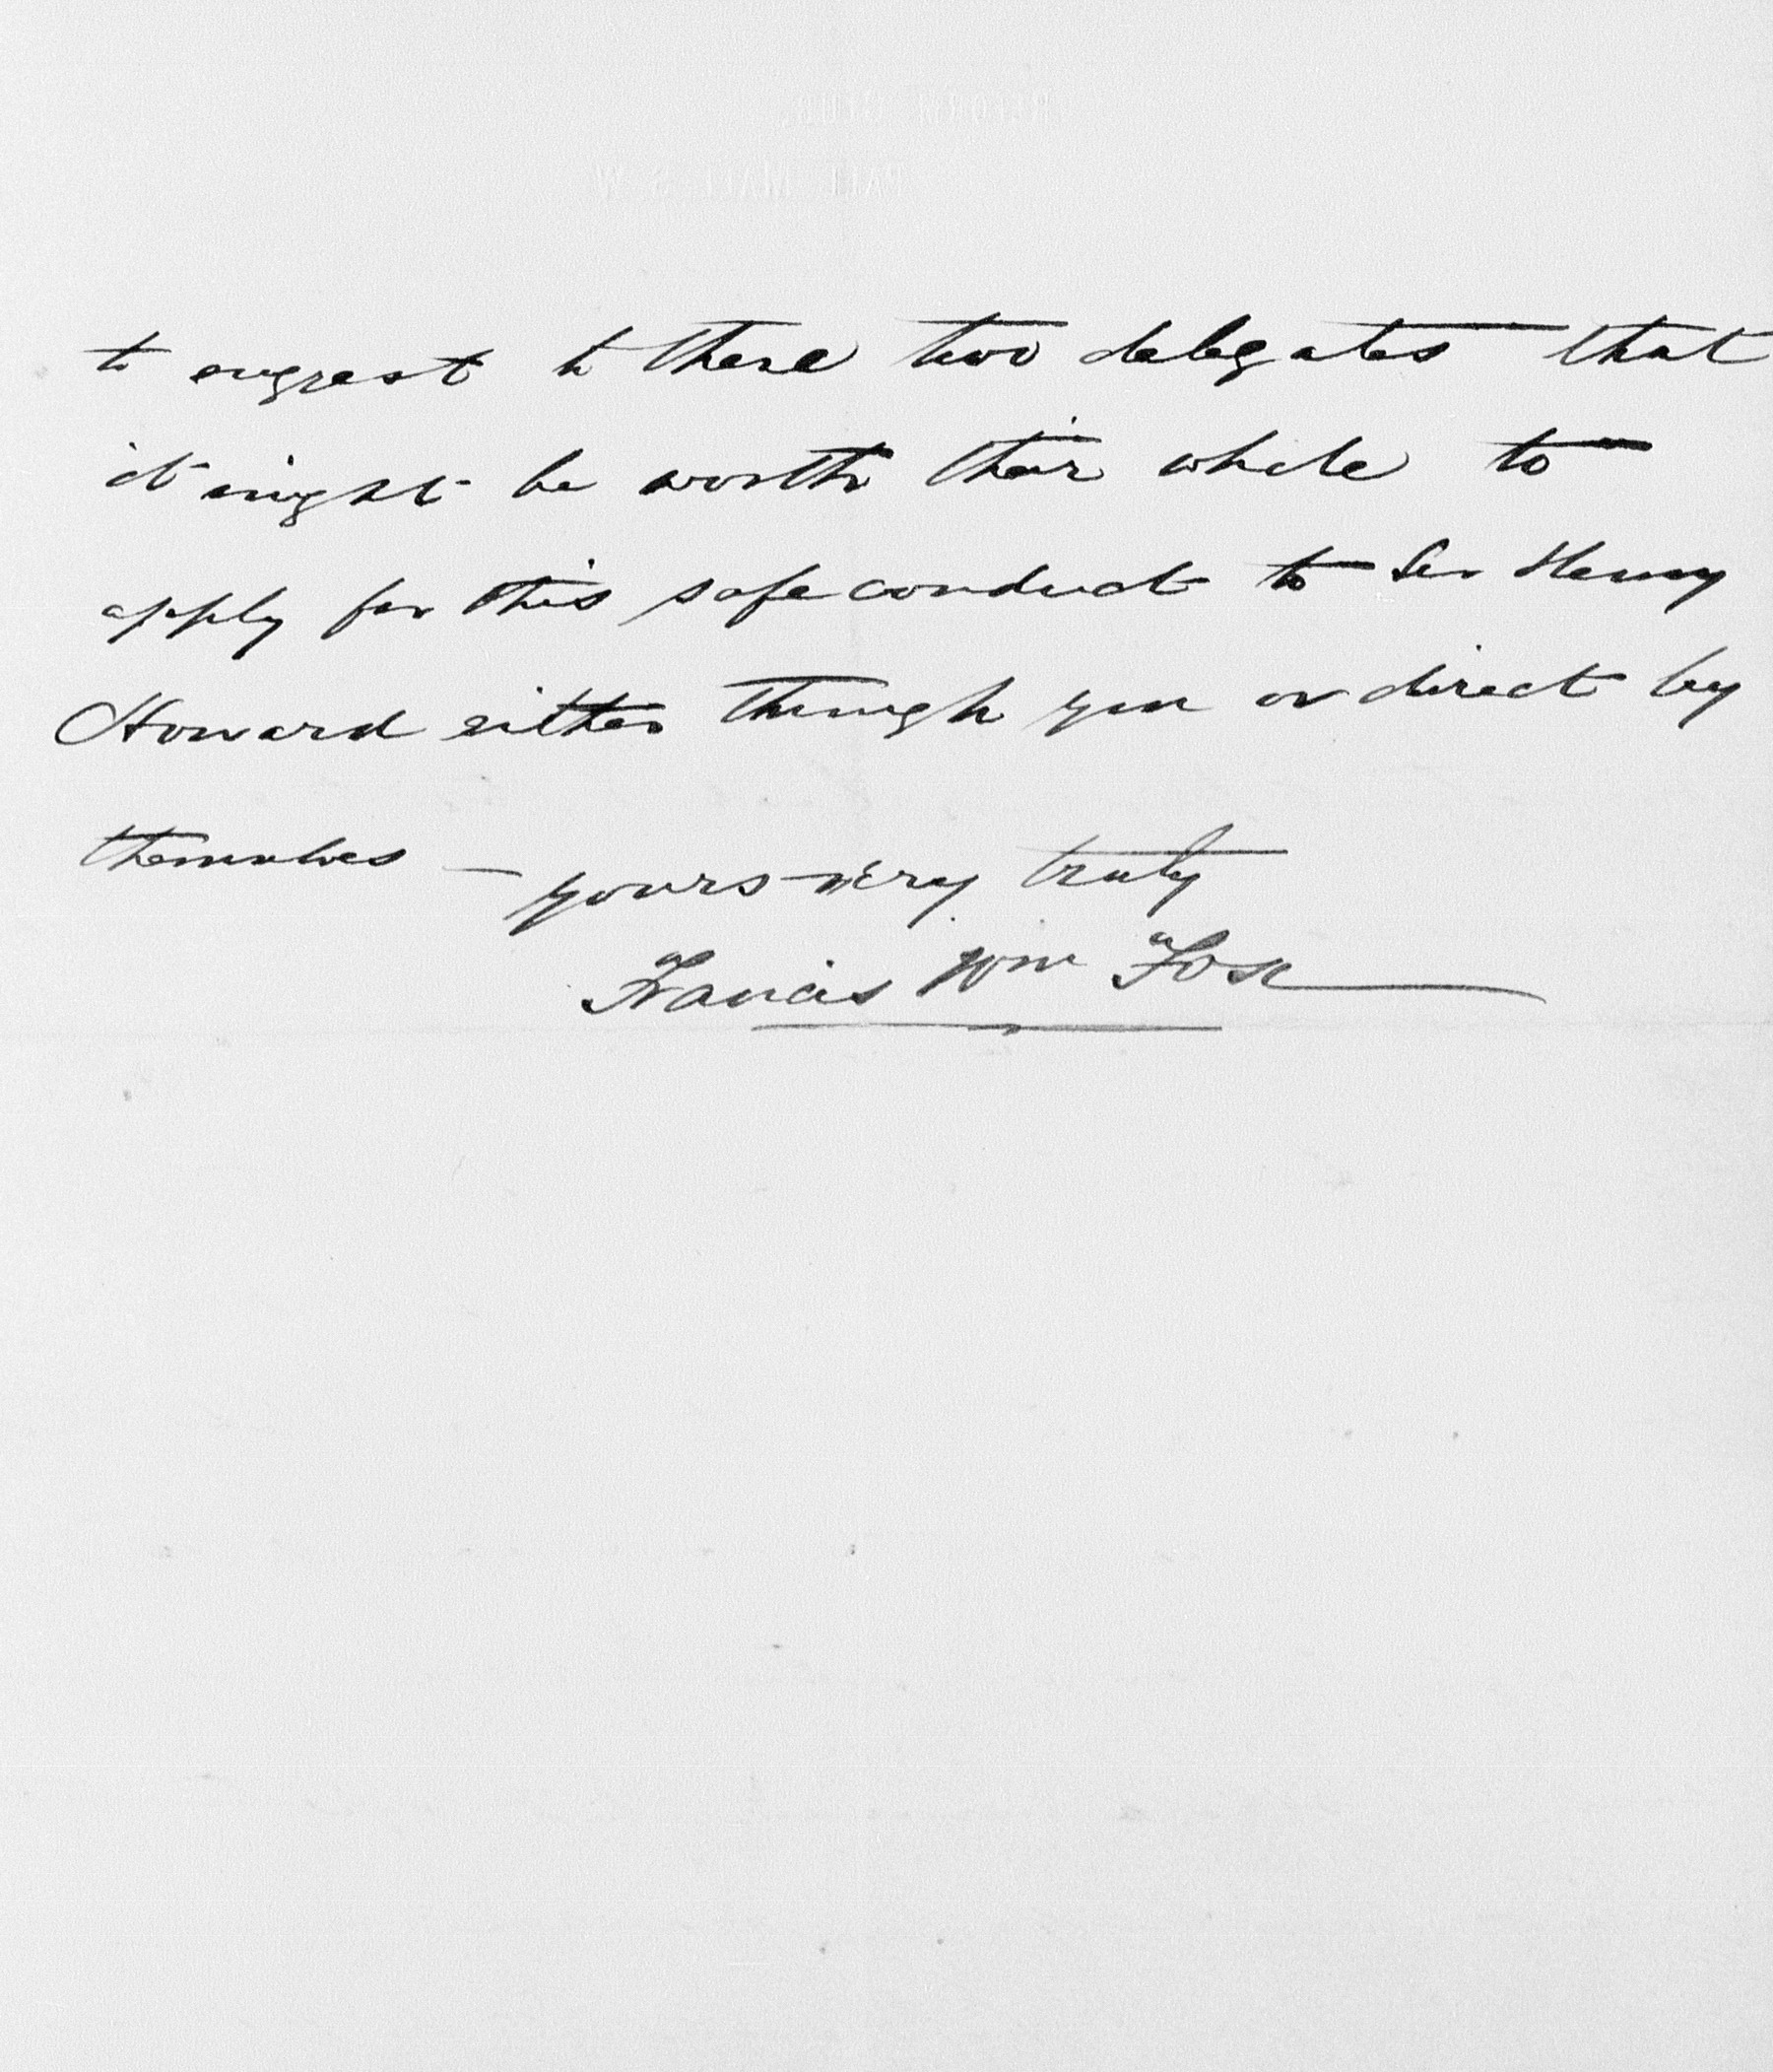 REFORM CLUB,
PALL MALL. S.W.
to suggest to these two delegates that
it might be worth their while to
apply for this safe conduct to Sir Henry
Howard either through you or direct by
themselves — yours very truly
Francis Wm Fox